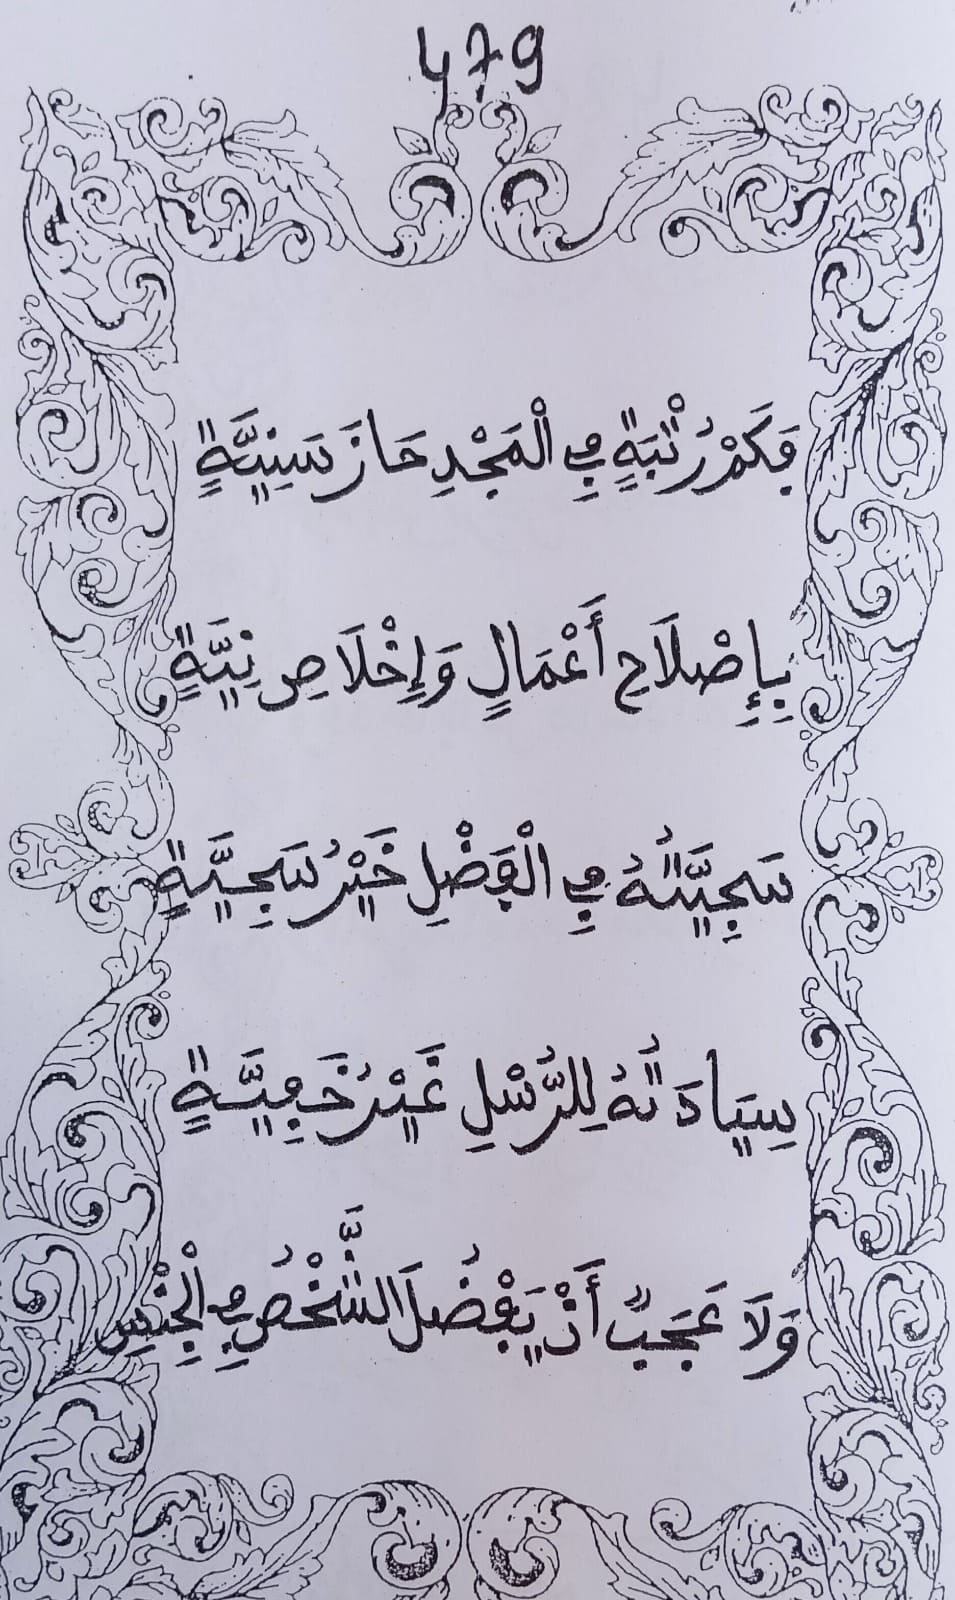 479
فَكَمْ رُتْبَةٍ فِي الْمَجْدِ حَازَ سَنِيَّةٍ
بِإِصْلَاحِ أَعْمَالٍ وَإِخْلَاصِ نِيَّةٍ
سَجِيَّتُهُ فِي الْفَضْلِ خَيْرُ سَجِيَّةٍ
سِيَادَتُهُ لِلرُّسْلِ غَيْرُ خَفِيَّةٍ
وَلَا عَجَبٌ أَنْ يَفْضُلَ الشَّخْصُ فِي الْجِنْسِ